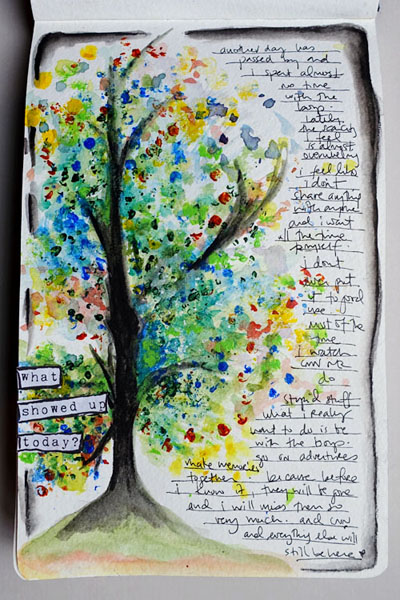 another day has
passed by and
i spent almost
no time
with the
boys.
lately,
the
i feel
is almost
overwhelming
i feel like
i don't
share anything
with anyone
and i want
all the time
to myself
i don't
even put
it to good
use
most of the
time
i watch
CNN or
do
stupid stuff
what i really
want to do is be
with the boys.
go on adventures
make memories
together because before
i know it, they will be gone
and i will miss them so
very much. and CNN
and everything else will
still be here
What
showed up
today?